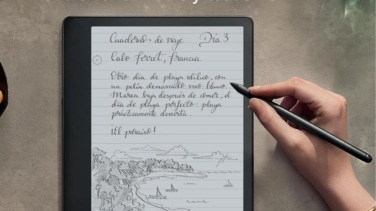 Cuaderno de viaje Día 3
Cabo Ferret, Francia
Otro día de playa idílico, con
un patín demasiado
Marea baja después de comer, el
día de playa perfecto: playa
prácticamente desierta.
¡El paraíso!